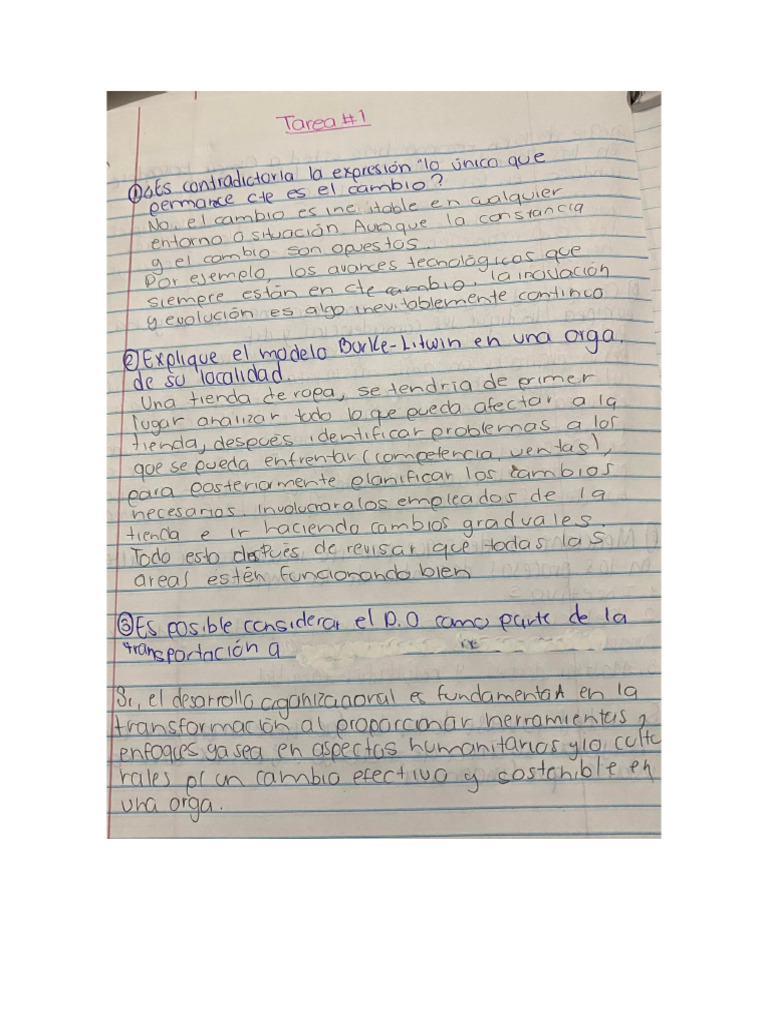 Tarea #1
①¿Es contradictoria la expresión "lo único que
permance cte es el cambio?
No, el cambio es ine itable en cualquier
entorno o situación Aunque la constancia
y el cambio son opuestos.
Por ejemplo, los avances tecnológicos que
siempre están en cte cambio, la inovación
y evolución es algo inevitablemente continuo
②Explique el modelo Burke-Litwin en una orga.
de su localidad.
Una tienda de ropa, se tendría de primer
lugar analizar todo lo que pueda afectar a la
tienda, después identificar problemas a los
que se pueda enfrentar (competencia, ventas),
para posteriormente planificar los cambios
necesarios. Involucrar a los empleados de la
tienda e ir haciendo cambios graduales.
Todo esto después de revisar que todas las
areas estén funcionando bien
③Es posible considerar el D.O como parte de la
transportación a
Si, el desarrollo organizacional es fundamental en la
transformación al proporcionar herramientas y
enfoques ya sea en aspectos humanitarios y/o cultu
rales p/ un cambio efectivo y sostenible en
una orga.